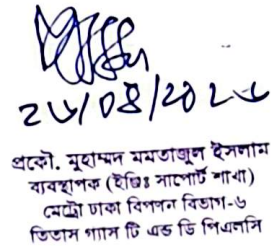 ২৬/০৪/২০২৬
প্রকৌ. মুহাম্মদ মমতাজুল ইসলাম
ব্যবস্থাপক (ইঞ্জিঃ সাপোর্ট শাখা)
মেট্রো ঢাকা বিপণন বিভাগ-৬
তিতাস গ্যাস টি এন্ড ডি পিএলসি